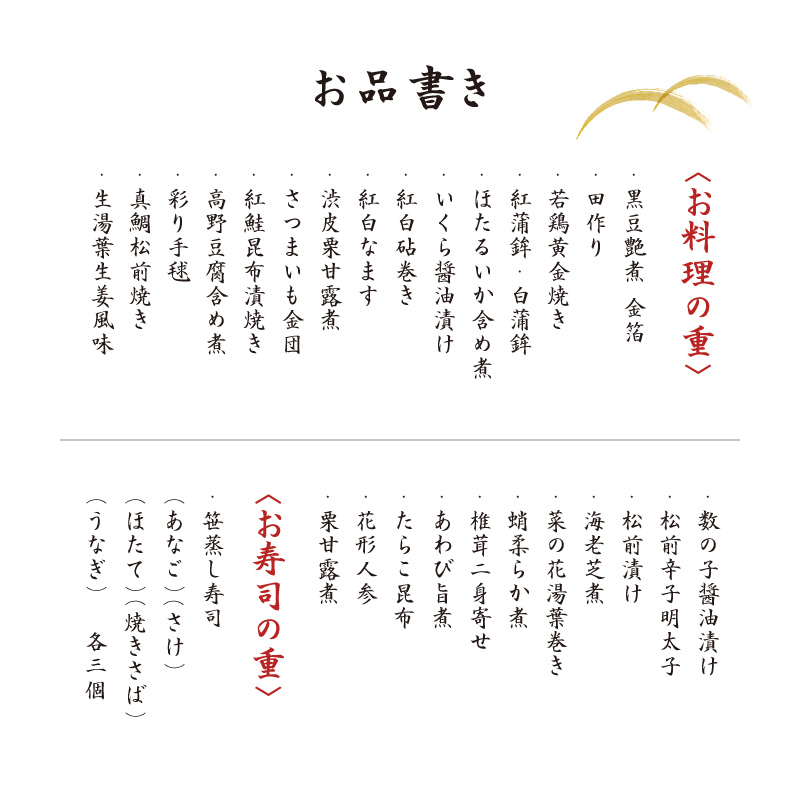 お品書き
〈お料理の重〉
・黒豆艶煮 金箔
・田作り
・若鶏黄金焼き
・紅蒲鉾・白蒲鉾
・ほたるいか含め煮
・いくら醤油漬け
・紅白砧巻き
・紅白なます
・渋皮栗甘露煮
・さつまいも金団
・紅鮭昆布漬焼き
・高野豆腐含め煮
・彩り手毬
・真鯛松前焼き
・生湯葉生姜風味
・数の子醤油漬け
・松前辛子明太子
・松前漬け
・海老芝煮
・菜の花湯葉巻き
・蛸柔らか煮
・椎茸二身寄せ
・あわび旨煮
・たらこ昆布
・花形人参
・栗甘露煮
〈お寿司の重〉
・笹蒸し寿司
（あなご）（さけ）
（ほたて）（焼きさば）
（うなぎ） 各三個